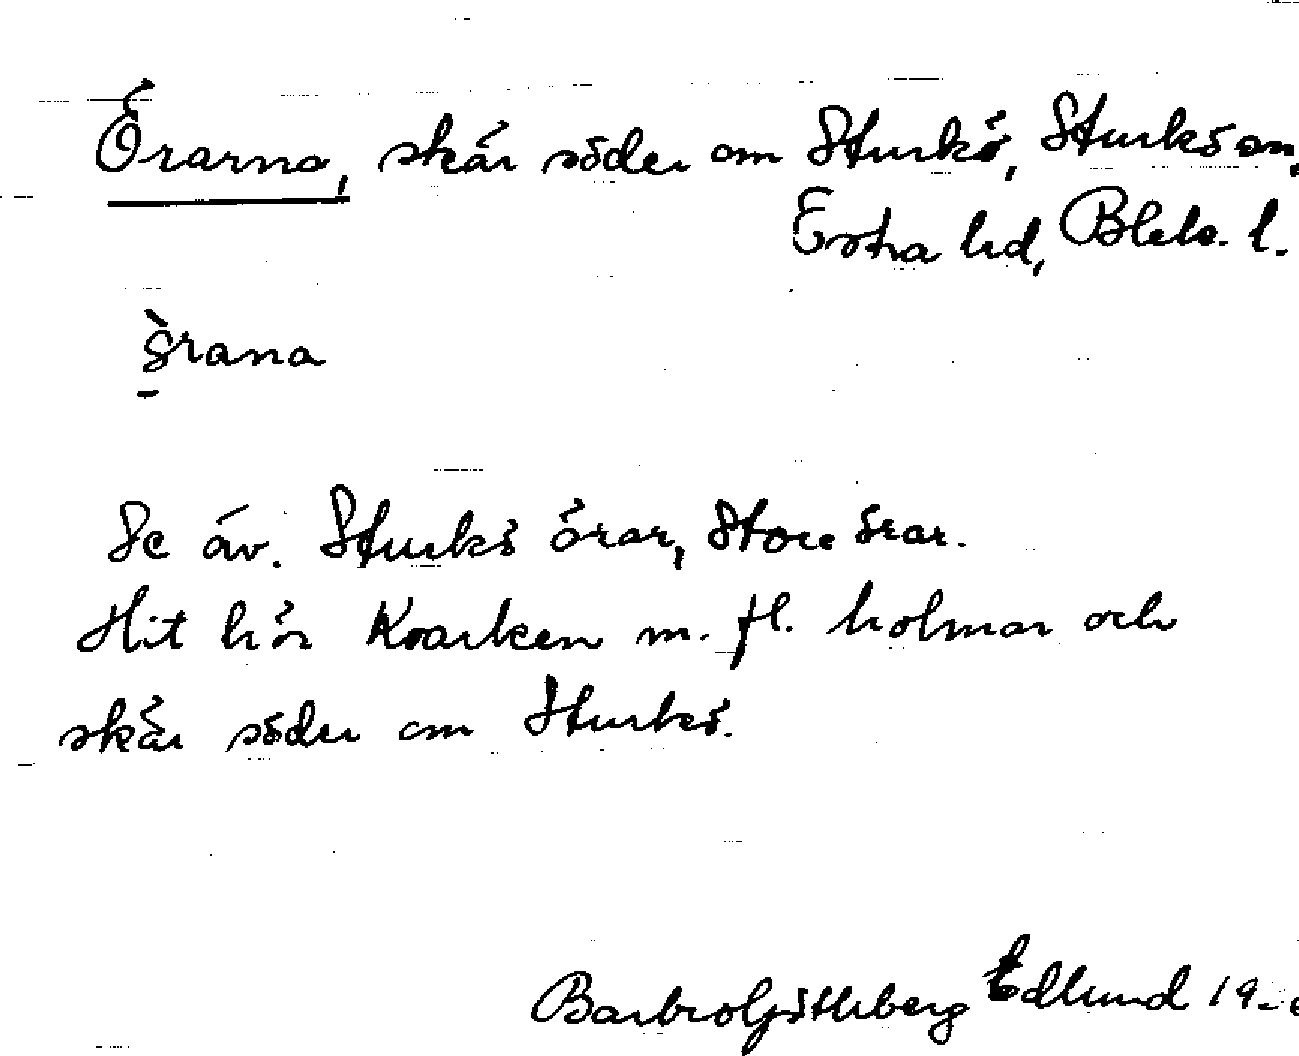 Örarna, skär söder om Sturkö, Sturkö sn,
Östra hd, Blek. l.
Se äv. Sturkö örar, Store örar.
Hit hör Kvarken m. fl. holmar och
skär söder om Sturkö.
Barbro Götherberg Edlund